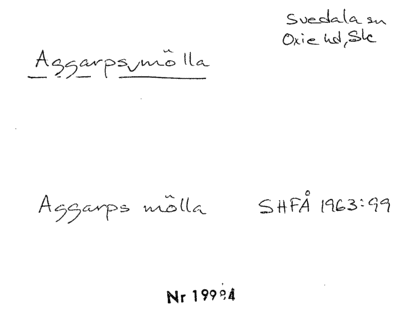 Svedala sn
Oxie hd, Sk
Aggarps mölla
Aggarps mölla SHFÅ 1963:99
Nr 19994